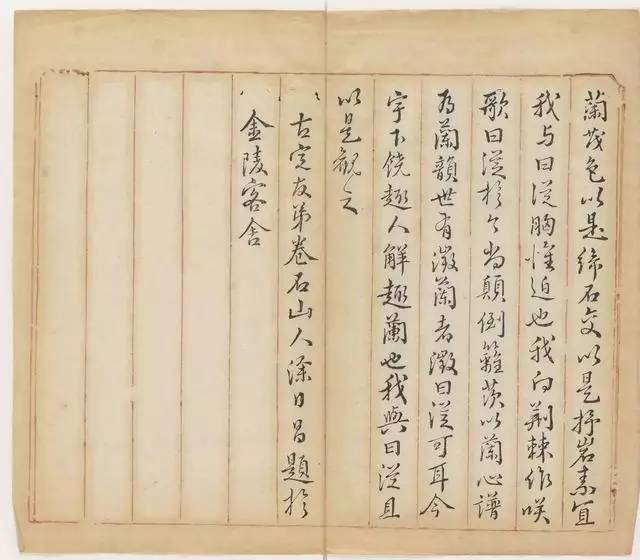 蘭茂色以是締石交以是抒岩素宜
我与曰從胸懷迫也我向荆棘作咲
歌曰從於今尚顛倒籬茨以蘭心譜
為蘭韻世有徵蘭者徵曰從可耳今
宇下饒趣人解趣蘭也我與曰從且
以是観之
古宣友弟卷石山人涂日昌題於
金陵客舍